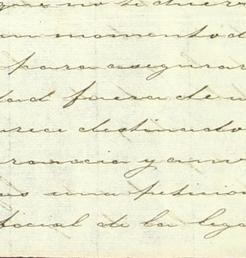 que no se
un momento d
para asegurar
dad fuera de
rece destinado
rancia y
una peticion
ficial de la lega